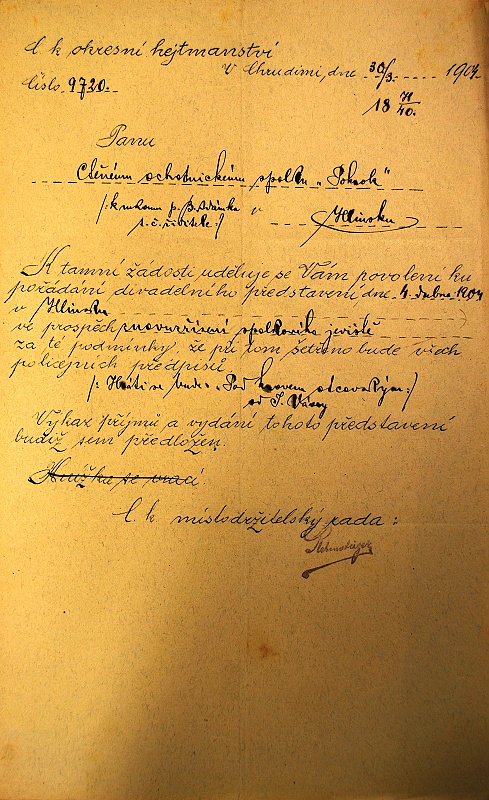 C. k. okresní hejtmanství
V Chrudimi, dne 30/3. 1904.
Číslo 9720.
18 H/40.
Panu
Ctěnému ochotnickému spolku „Pokrok"
/: k rukoum p. B. Adámka v Hlinsku
t. č. ředitele :/
K tamní žádosti uděluje se Vám povolení ku
pořádání divadelního představení dne 4. dubna 1904
v Hlinsku
ve prospěch znovuzřízení spolkového jeviště
za té podmínky, že při tom šetřeno bude všech
policejních předpisů
/: Hráti se bude: „Pod krovem otcovským :/
od J. Vávry
Výkaz příjmů a vydání tohoto představení
budiž sem předložen.
Knížka se vrací.
C. k. místodržitelský rada: